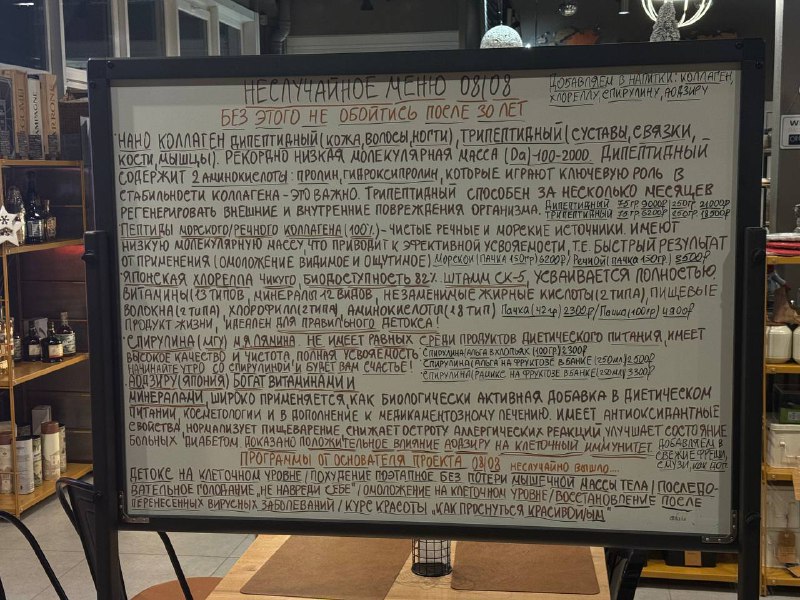 НЕСЛУЧАЙНОЕ МЕНЮ 08|08
ДОБАВЛЯЕМ В НАПИТКИ: КОЛЛАГЕН,
ХЛОРЕЛЛУ, СПИРУЛИНУ, АОДЗИРУ
БЕЗ ЭТОГО НЕ ОБОЙТИСЬ ПОСЛЕ 30 ЛЕТ
НАНО КОЛЛАГЕН ДИПЕПТИДНЫЙ (КОЖА, ВОЛОСЫ, НОГТИ), ТРИПЕПТИДНЫЙ (СУСТАВЫ, СВЯЗКИ,
КОСТИ, МЫШЦЫ). РЕКОРДНО НИЗКАЯ МОЛЕКУЛЯРНАЯ МАССА (Da)-100-2000. ДИПЕПТИДНЫЙ
СОДЕРЖИТ 2 АМИНОКИСЛОТЫ: ПРОЛИН, ГИДРОКСИПРОЛИН, КОТОРЫЕ ИГРАЮТ КЛЮЧЕВУЮ РОЛЬ В
СТАБИЛЬНОСТИ КОЛЛАГЕНА - ЭТО ВАЖНО. ТРИПЕПТИДНЫЙ СПОСОБЕН ЗА НЕСКОЛЬКО МЕСЯЦЕВ
РЕГЕНЕРИРОВАТЬ ВНЕШНИЕ И ВНУТРЕННИЕ ПОВРЕЖДЕНИЯ ОРГАНИЗМА. ДИПЕПТИДНЫЙ 75гр 9000₽ 250гр 21000₽
ТРИПЕПТИДНЫЙ 75гр 6200₽ 250гр 13500₽
ПЕПТИДЫ МОРСКОГО/РЕЧНОГО КОЛЛАГЕНА (100%) - ЧИСТЫЕ РЕЧНЫЕ И МОРСКИЕ ИСТОЧНИКИ. ИМЕЮТ
НИЗКУЮ МОЛЕКУЛЯРНУЮ МАССУ, ЧТО ПРИВОДИТ К ЭФЕКТИВНОЙ УСВОЯЕМОСТИ, Т.Е. БЫСТРЫЙ РЕЗУЛЬТАТ
ОТ ПРИМЕНЕНИЯ (ОМОЛОЖЕНИЕ ВИДИМОЕ И ОЩУТИМОЕ) МОРСКОЙ (ПАЧКА 150гр) 6200₽ / РЕЧНОЙ (ПАЧКА 150гр.) 3600₽
ЯПОНСКАЯ ХЛОРЕЛЛА ЧИКУГО. БИОДОСТУПНОСТЬ 82%. ШТАММ СК-5, УСВАИВАЕТСЯ ПОЛНОСТЬЮ
ВИТАМИНЫ (13 ТИПОВ), МИНЕРАЛЫ 12 ВИДОВ, НЕЗАМЕНИМЫЕ ЖИРНЫЕ КИСЛОТЫ (2 ТИПА), ПИЩЕВЫЕ
ВОЛОКНА (2 ТИПА), ХЛОРОФИЛЛ (2 ТИПА), АМИНОКИСЛОТЫ (18 ТИП) ПАЧКА (42гр) 2300₽ / ПАЧКА (100гр) 4900₽
ПРОДУКТ ЖИЗНИ, ИДЕАЛЕН ДЛЯ ПРАВИЛЬНОГО ДЕТОКСА!
СПИРУЛИНА (МГУ) М.Я. ЛЯМИНА НЕ ИМЕЕТ РАВНЫХ СРЕДИ ПРОДУКТОВ ДИЕТИЧЕСКОГО ПИТАНИЯ, ИМЕЕТ
ВЫСОКОЕ КАЧЕСТВО И ЧИСТОТА, ПОЛНАЯ УСВОЯЕМОСТЬ СПИРУЛИНА (АЛЬГА В ХЛОПЬЯХ (100гр) 2300₽
НАЧИНАЙТЕ УТРО СО СПИРУЛИНОЙ И БУДЕТ ВАМ СЧАСТЬЕ! СПИРУЛИНА (АЛЬГА НА ФРУКТОЗЕ В БАНКЕ (250мл) 2500₽
СПИРУЛИНА (РАДИКС НА ФРУКТОЗЕ В БАНКЕ (250мл) 3300₽
АОДЗИРУ (ЯПОНИЯ) БОГАТ ВИТАМИНАМИ И
МИНЕРАЛАМИ, ШИРОКО ПРИМЕНЯЕТСЯ, КАК БИОЛОГИЧЕСКИ АКТИВНАЯ ДОБАВКА В ДИЕТИЧЕСКОМ
ПИТАНИИ, КОСМЕТОЛОГИИ И В ДОПОЛНЕНИЕ К МЕДИКАМЕНТОЗНОМУ ЛЕЧЕНИЮ. ИМЕЕТ АНТИОКСИДАНТНЫЕ
СВОЙСТВА, НОРМАЛИЗУЕТ ПИЩЕВАРЕНИЕ, СНИЖАЕТ ОСТРОТУ АЛЛЕРГИЧЕСКИХ РЕАКЦИЙ, УЛУЧШАЕТ СОСТОЯНИЕ
БОЛЬНЫХ ДИАБЕТОМ. ДОКАЗАНО ПОЛОЖИТЕЛЬНОЕ ВЛИЯНИЕ АОДЗИРУ НА КЛЕТОЧНЫЙ ИММУНИТЕТ. ДОБАВЛЯЕМ В
СВЕЖИЕ ФРЕШИ,
СМУЗИ, КАК ДОП.
ПРОГРАММЫ ОТ ОСНОВАТЕЛЯ ПРОЕКТА 08|08 НЕСЛУЧАЙНО ВЫШЛО...
ДЕТОКС НА КЛЕТОЧНОМ УРОВНЕ / ПОХУДЕНИЕ ПОЭТАПНОЕ БЕЗ ПОТЕРИ МЫШЕЧНОЙ МАССЫ ТЕЛА / ПОСЛЕДО-
ВАТЕЛЬНОЕ ГОЛОДАНИЕ „НЕ НАВРЕДИ СЕБЕ" / ОМОЛОЖЕНИЕ НА КЛЕТОЧНОМ УРОВНЕ / ВОССТАНОВЛЕНИЕ ПОСЛЕ
ПЕРЕНЕСЕННЫХ ВИРУСНЫХ ЗАБОЛЕВАНИЙ / КУРС КРАСОТЫ „КАК ПРОСНУТЬСЯ КРАСИВОЙ/ЫМ"